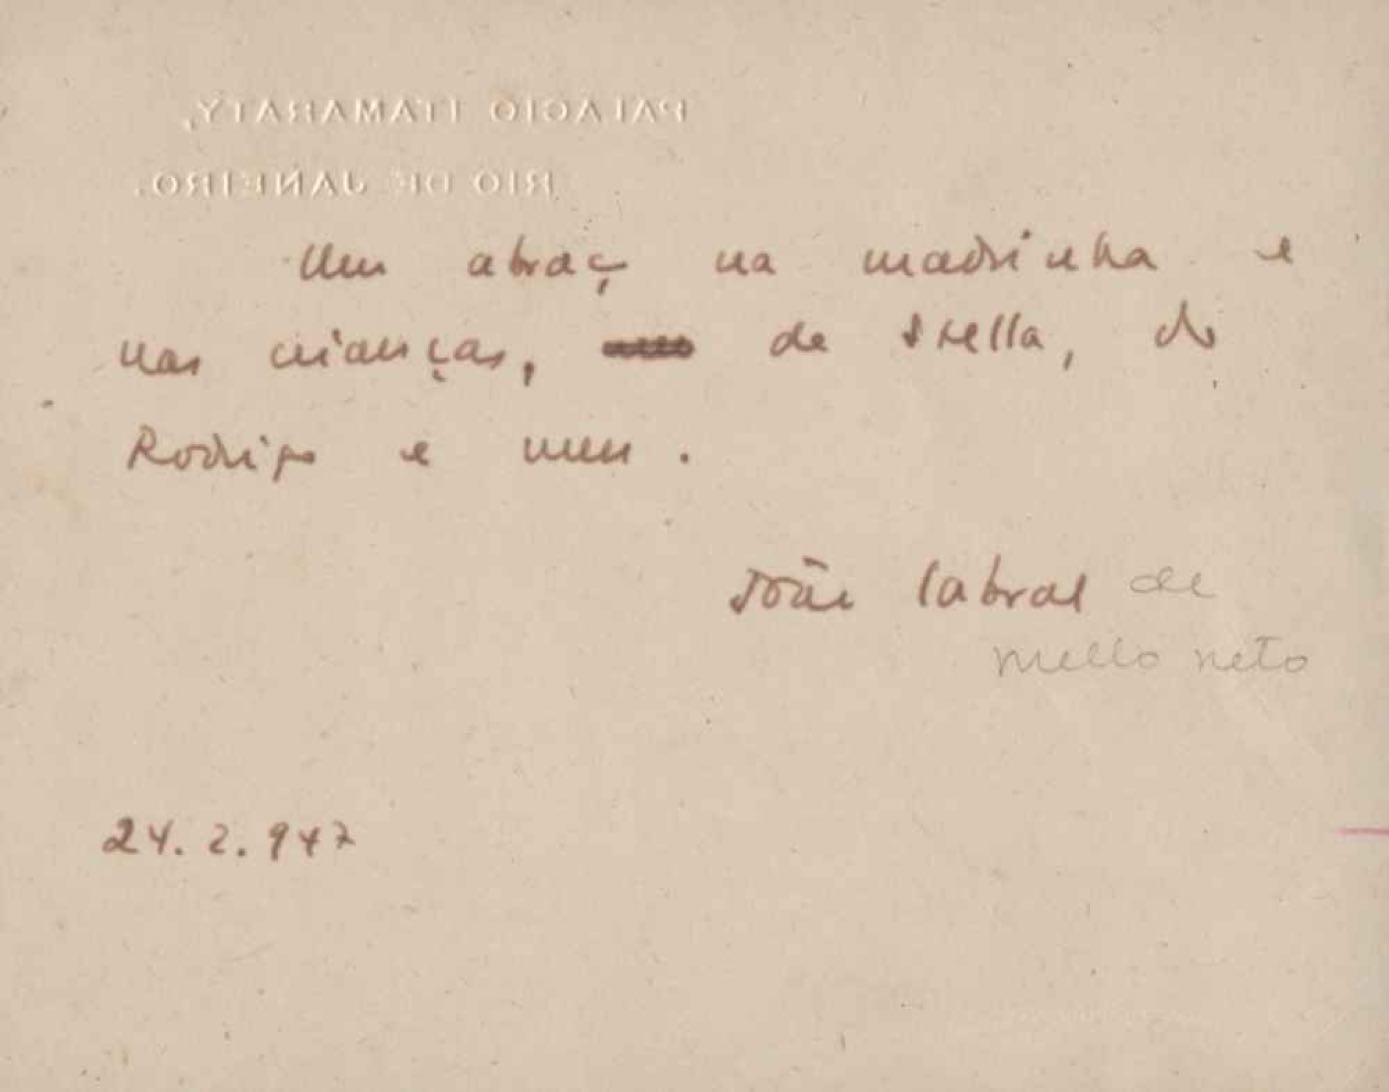 PALACIO ITAMARATY,
RIO DE JANEIRO.
Um abraço na madrinha e
nas crianças, de Stella, do
Rodrigo e meu.
João Cabral de
mello neto
24.2.947